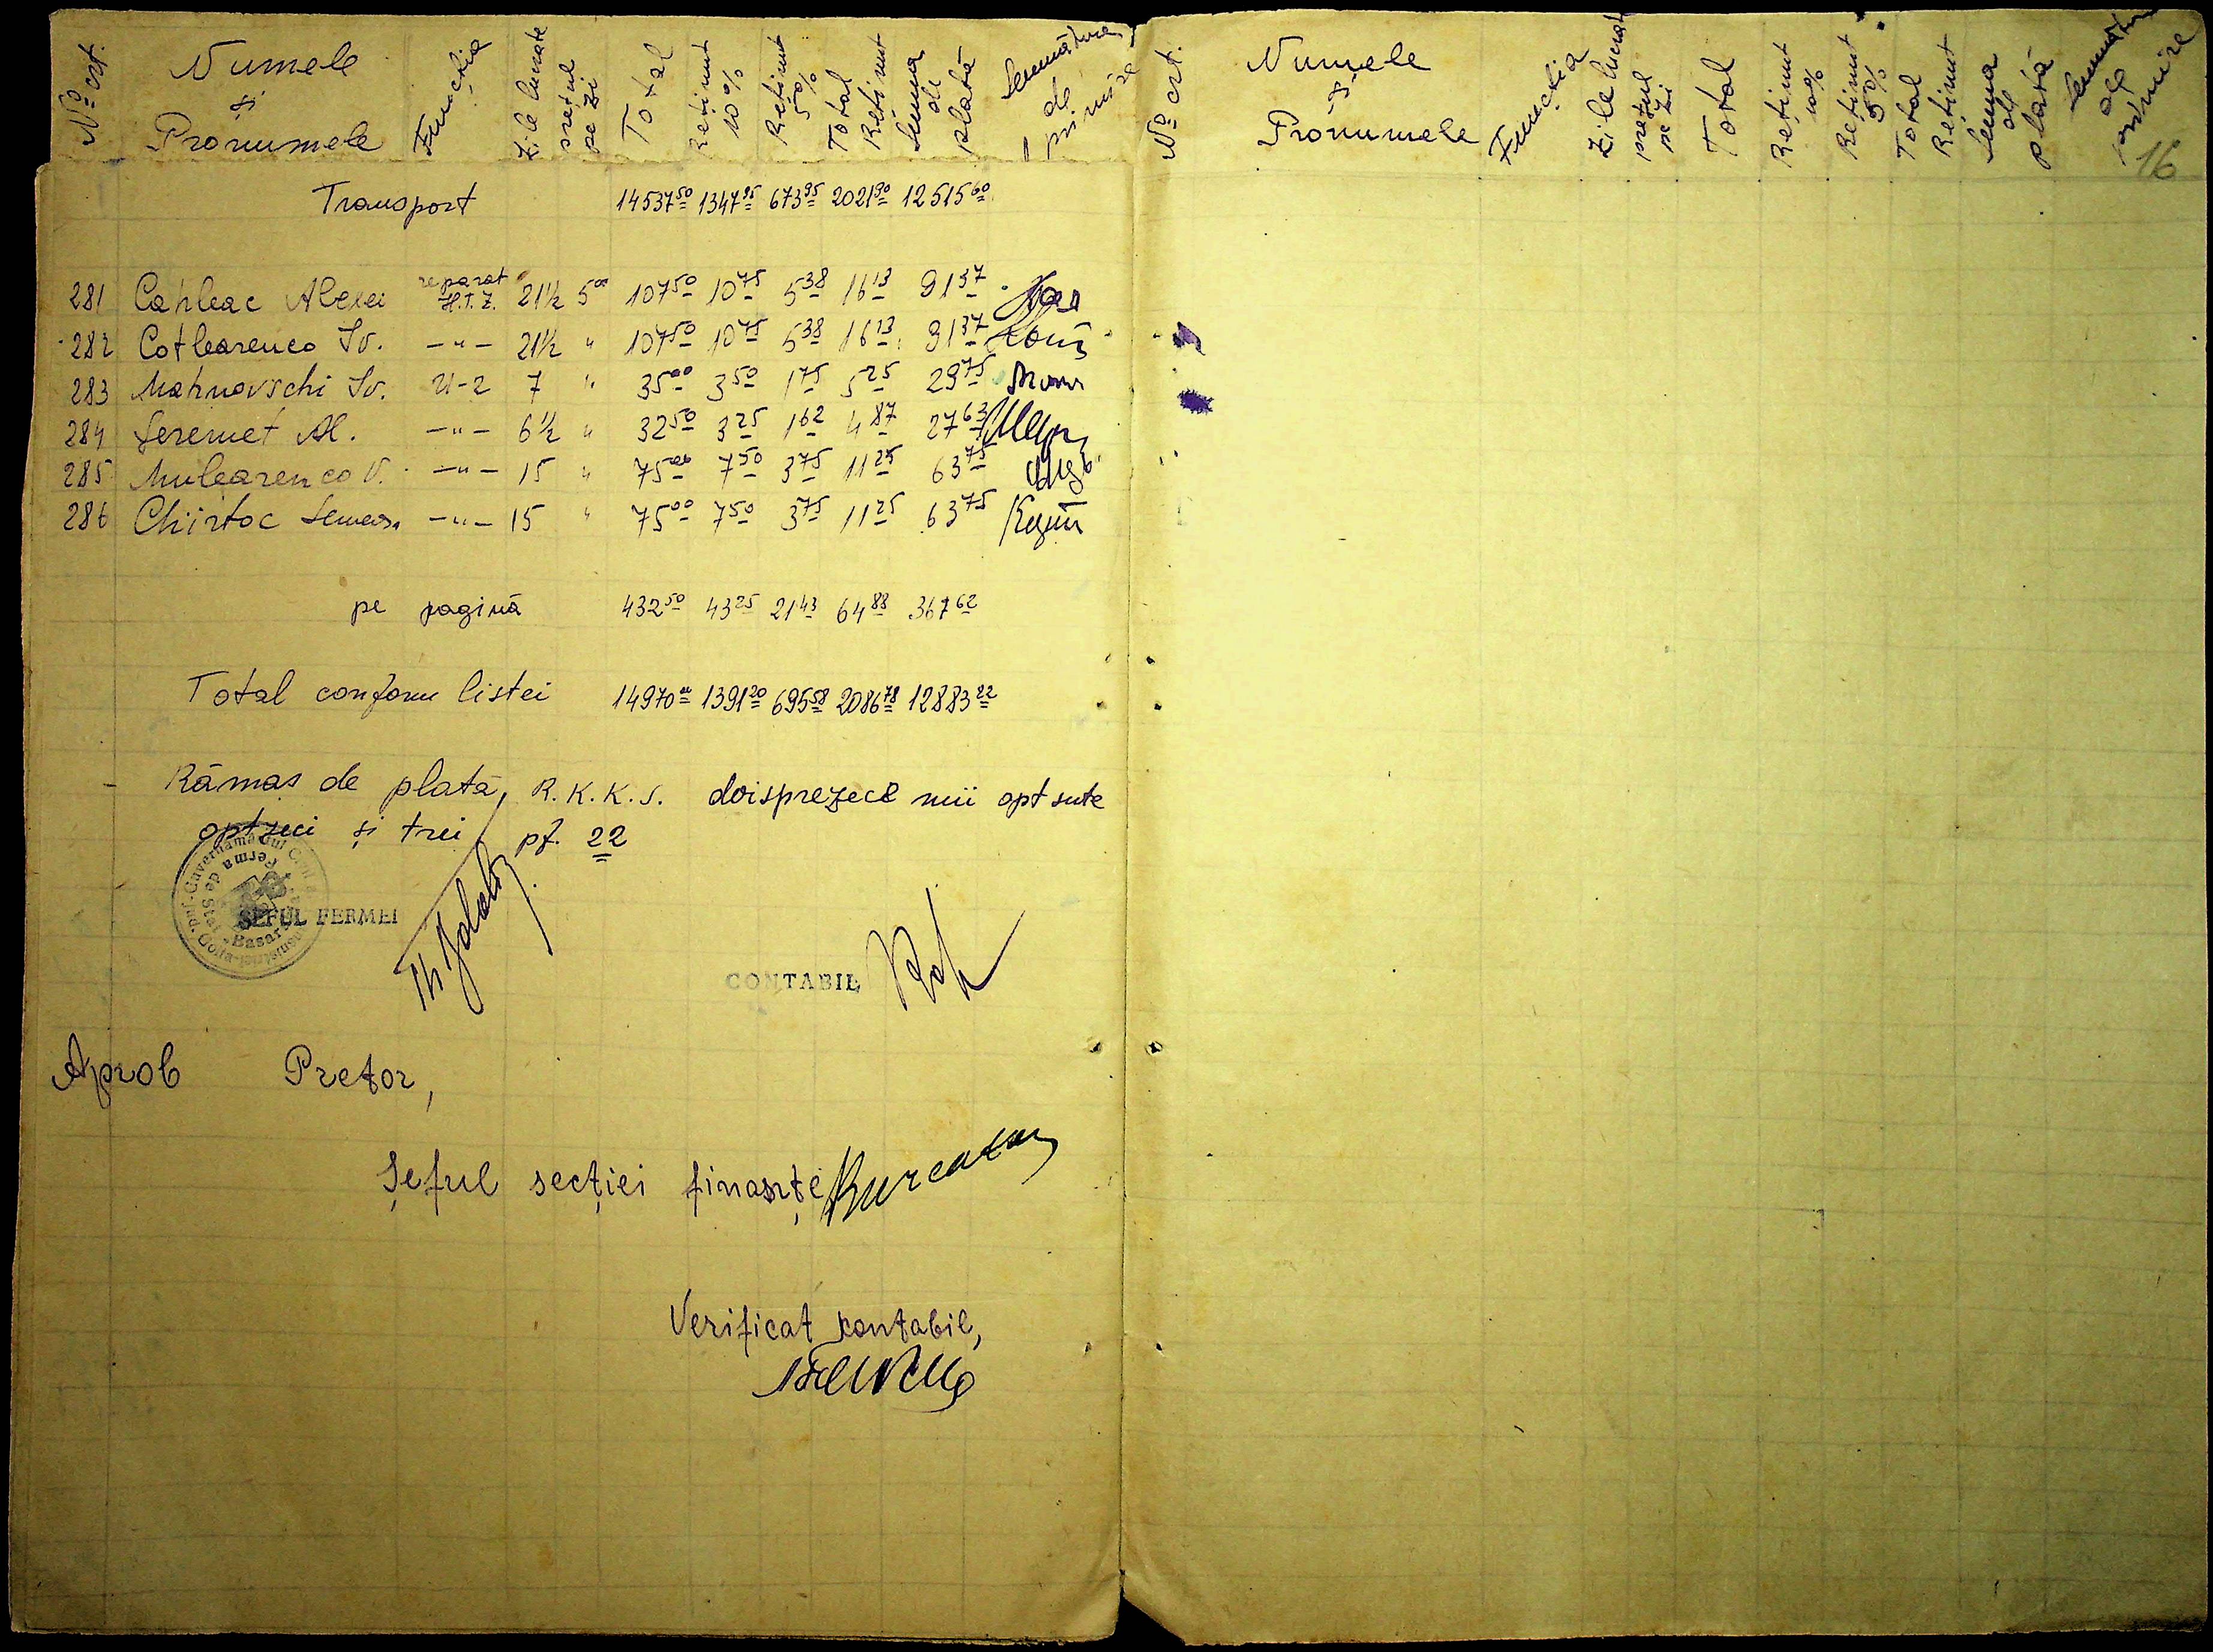 No crt. Numele și Pronumele Funcția Zile lucrate prețul pe zi Total Reținut 10% Reținut 5% Total Reținut Suma de plată Semnătura de primire
Transport 14537 50 1347 95 673 95 2021 90 12515 60
281 Cahleac Alexei reparat H.T.Z. 21½ 5 00 107 50 10 75 5 38 16 13 91 37
282 Cotlearenco Iv. —"— 21½ " 107 50 10 75 5 38 16 13 91 37
283 Mahnovschi Iv. U-2 7 " 35 00 3 50 1 75 5 25 29 75
284 Șeremet Al. —"— 6½ " 32 50 3 25 1 62 4 87 27 63
285 Mulearenco V. —"— 15 " 75 00 7 50 3 75 11 25 63 75
286 Chirtoc —"— 15 " 75 00 7 50 3 75 11 25 63 75
pe pagină 432 50 43 25 21 43 64 88 367 62
Total conform listei 14970 00 1391 20 695 58 2086 78 12883 22
Rămas de plată, R.K.K.S. doisprezece mii opt sute
optzeci și trei pf. 22
ȘEFUL FERMEI
CONTABIL
Aprob Pretor,
Șeful secției finanțe
Verificat contabil,
No crt. Numele și Pronumele Funcția Zile lucrat prețul pe zi Total Reținut 10% Reținut 5% Total Reținut Suma de plată Semnătura de primire
16